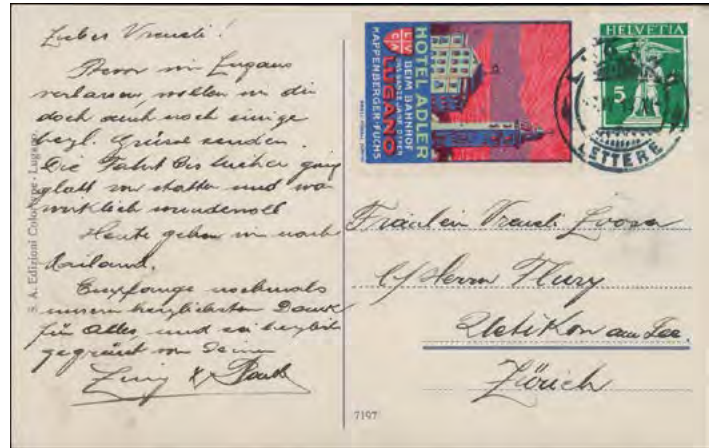 Lieber Vreneli!
Bevor wir Lugano
verlassen, wollen wir dir
doch auch noch einige
herzl. Grüsse senden.
Die Fahrt bis hieher ging
glatt von statten und war
wirklich wundervoll
Heute gehen wir nach
Mailand.
Empfange nochmals
unsern herzlichsten Dank
für Alles, und sei herzlich
gegrüsst von Deinen
S. A. Edizioni Colortype - Lugano.
HOTEL ADLER
BEIM BAHNHOF
DAS GANZE JAHR OFFEN
LUGANO
KAPPENBERGER-FUCHS
HELVETIA
5
LETTERE
Fräulein Vreneli
c/o Herrn Flury
Uetikon am See
Zürich
7197